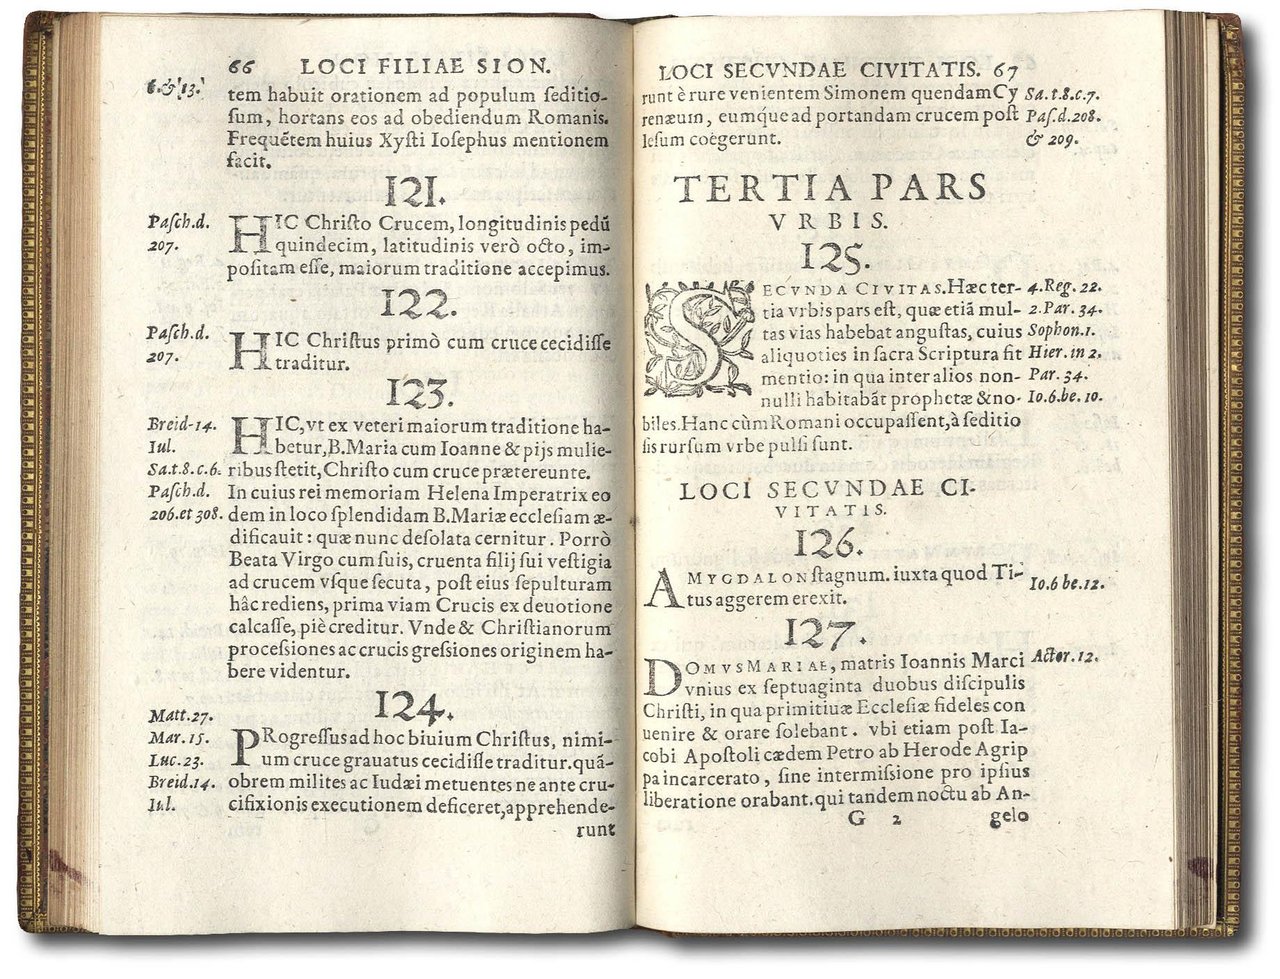 66 LOCI FILIAE SION.
6.&'13.'
tem habuit orationem ad populum ſeditio-
ſum, hortans eos ad obediendum Romanis.
Frequētem huius Xyſti Ioſephus mentionem
facit.
121.
Paſch.d.
207.
HIC Chriſto Crucem, longitudinis pedũ
quindecim, latitudinis verò octo, im-
poſitam eſſe, maiorum traditione accepimus.
122.
Paſch.d.
207.
HIC Chriſtus primò cum cruce cecidiſſe
traditur.
123.
Breid-14.
Iul.
Sa.t.8.c.6.
Paſch.d.
206.et 308.
HIC, vt ex veteri maiorum traditione ha-
betur, B. Maria cum Ioanne & pijs mulie-
ribus ſtetit, Chriſto cum cruce prætereunte.
In cuius rei memoriam Helena Imperatrix eo
dem in loco ſplendidam B. Mariæ eccleſiam æ-
dificauit : quæ nunc deſolata cernitur. Porrò
Beata Virgo cum ſuis, cruenta filij ſui veſtigia
ad crucem vſque ſecuta, poſt eius ſepulturam
hâc rediens, prima viam Crucis ex deuotione
calcaſſe, piè creditur. Vnde & Chriſtianorum
proceſsiones ac crucis greſsiones originem ha-
bere videntur.
124.
Matt.27.
Mar.15.
Luc.23.
Breid.14.
Iul.
PRogreſſus ad hoc biuium Chriſtus, nimi-
um cruce grauatus cecidiſſe traditur. quã-
obrem milites ac Iudæi metuentes ne ante cru-
cifixionis executionem deficeret, apprehende-
runt
LOCI SECVNDAE CIVITATIS. 67
runt è rure venientem Simonem quendam Cy
renæum, eumque ad portandam crucem poſt
Ieſum coëgerunt.
Sa.t.8.c.7.
Paſ.d.208.
& 209.
TERTIA PARS
VRBIS.
125.
SECVNDA CIVITAS. Hæc ter-
tia vrbis pars eſt, quæ etiã mul-
tas vias habebat anguſtas, cuius
aliquoties in ſacra Scriptura fit
mentio: in qua inter alios non-
nulli habitabãt prophetæ & no-
biles. Hanc cùm Romani occupaſſent, à ſeditio
ſis rurſum vrbe pulſi ſunt.
4.Reg.22.
2.Par.34.
Sophon.1.
Hier.in 2.
Par.34.
Io.6.be.10.
LOCI SECVNDAE CI-
VITATIS.
126.
AMYGDALON ſtagnum. iuxta quod Ti-
tus aggerem erexit.
Io.6 be.12.
127.
DOMVS MARIAE, matris Ioannis Marci
vnius ex ſeptuaginta duobus diſcipulis
Chriſti, in qua primitiuæ Eccleſiæ fideles con
uenire & orare ſolebant . vbi etiam poſt Ia-
cobi Apoſtoli cædem Petro ab Herode Agrip
pa incarcerato, ſine intermiſsione pro ipſius
liberatione orabant. qui tandem noctu ab An-
Actor.12.
G 2 gelo